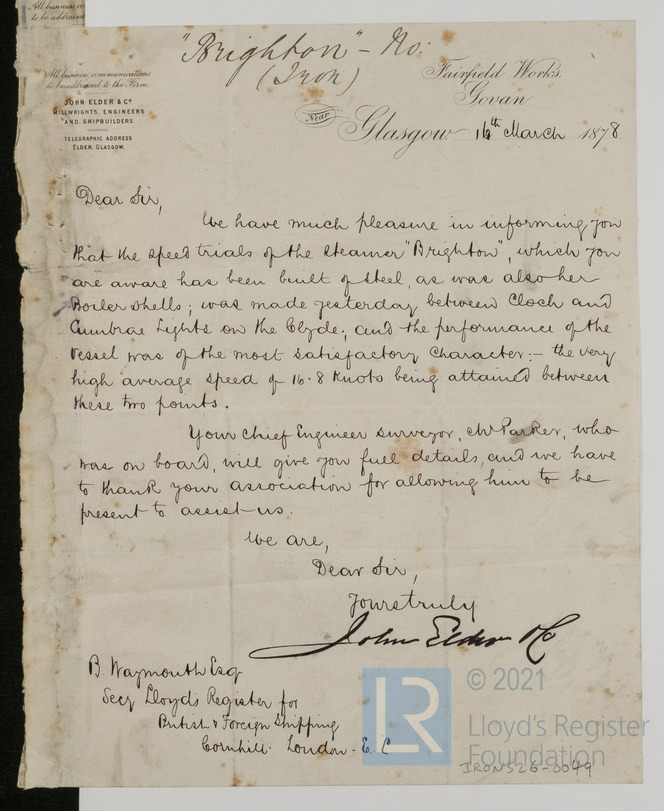 All business co
to be addressed
"Brighton" - No.
(Iron)
All business communications
to be addressed to the Firm.
JOHN ELDER & Co
MILLWRIGHTS, ENGINEERS
AND SHIPBUILDERS
TELEGRAPHIC ADDRESS
ELDER, GLASGOW.
Fairfield Works.
Govan
Near Glasgow 16th March 1878
Dear Sir,
We have much pleasure in informing you
that the speed trials of the steamer "Brighton", which you
are aware has been built of steel, as was also her
Boiler shells; was made yesterday between Cloch and
Cumbrae Lights on the Clyde; and the performance of the
vessel was of the most satisfactory character:- the very
high average speed of 16.8 Knots being attained between
these two points.
Your chief Engineer surveyor, Mr Parker, who
was on board, will give you full details, and we have
to thank your association for allowing him to be
present to assist us.
We are,
Dear Sir,
Yours truly
John Elder & Co
B. Waymouth Esq
Secy Lloyds Register for
British & Foreign Shipping
Cornhill. London. E. C
LR © 2021
Lloyd's Register
Foundation
IRON526-0049